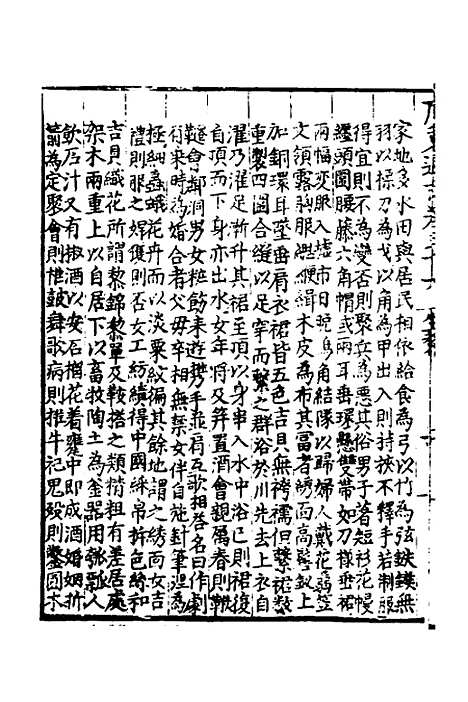 家地多水田與居民相依給食為弓以竹為弦鉄鏃無
羽以標刀為戈以角為甲出入則持挾不擇手若制服
得宜則不為變否則聚兵為惡其俗男子著短衫花幔
纒頭圍腰藤六角帽或兩耳垂環懸雙帶如刀様垂裙
兩幅夾腿入墟市日晩鳴角結隊以歸婦人戴花笠
文領露胸腿纒緝木皮為布其富者綉面高髻釵上
加銅環耳墜垂肩衣裙皆五色吉貝無袴襦但繫裙数
重製四圍合縫以足穿而繫之群浴於川先去上衣自
濯乃濯足漸升其裙至頂以身串入水中浴已則裙復
自頂而下身亦出水女年將及笄置酒會親屬春則鞦
韆會鄰洞男女粧飾來遊携手並肩互歌相答名曰作劇
有來時為婚合者父母卒相無禁女伴自施針筆涅為
極細虫蛾花卉而以淡粟紋徧其餘地謂之綉面女吉
禮則服之婢獲則否女工紡績得中國綵帛拆色絲和
吉貝織花所謂黎錦黎單及鞍搭之類精粗有差居處
架木兩重上以自居下以畜牧陶土為釜器用瓠瓢人
飲石汁又有椒酒以安石榴花着甕中即成酒婚姻折
箭為定聚會則椎鼓舞歌病則推牛祀鬼殁則鑿圓木